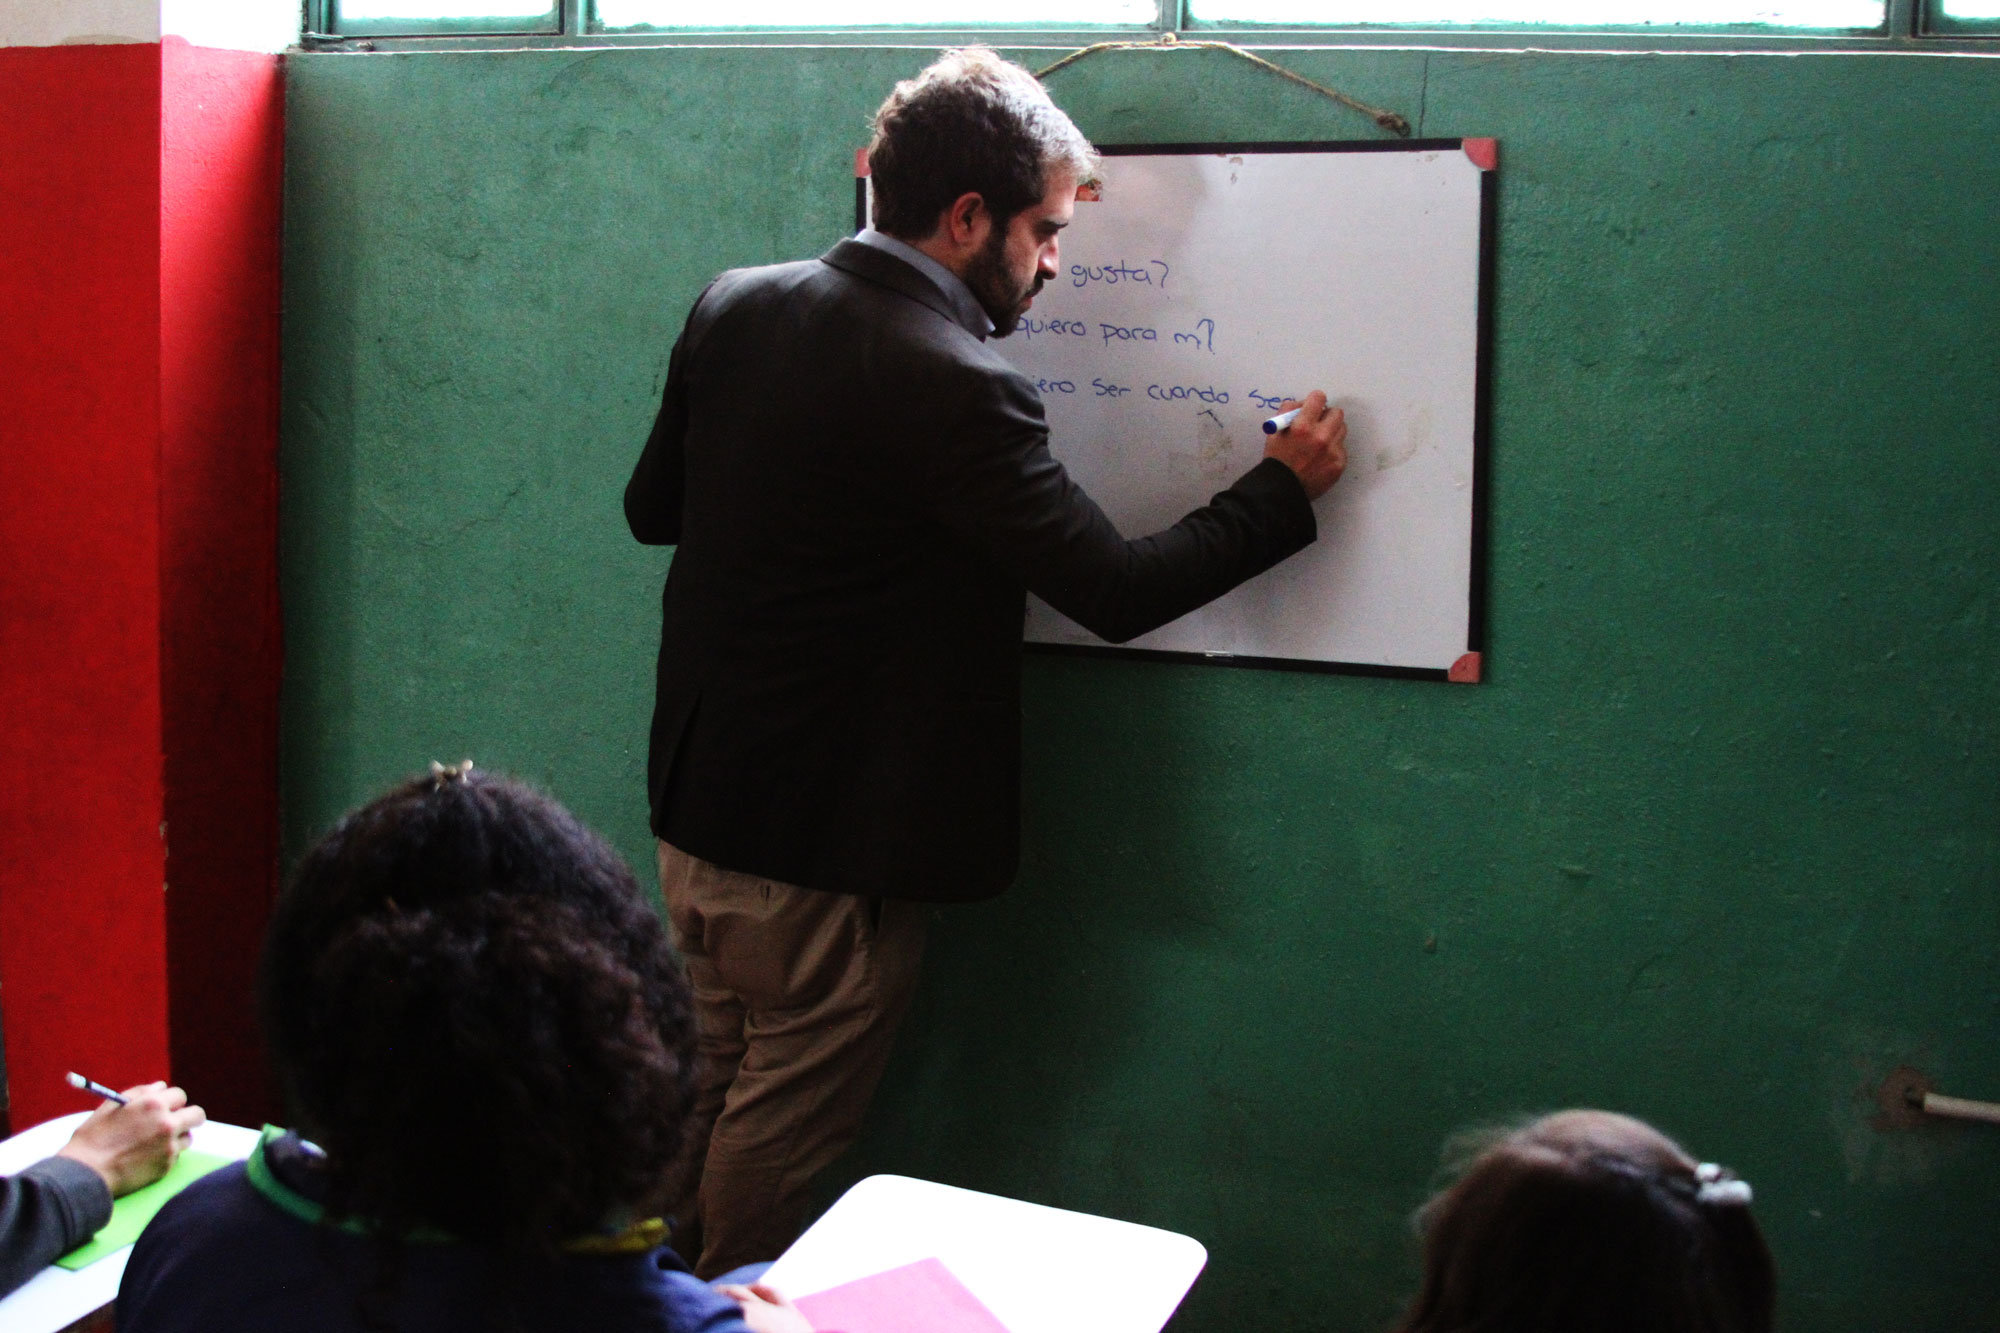 gusta?
quiero para mi?
ero ser cuando se